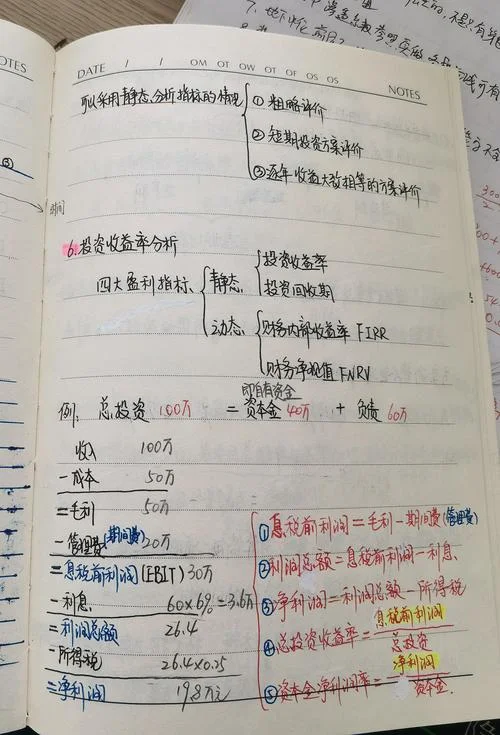 DATE / / OM OT OW OT OF OS OS NOTES
可以采用静态分析指标的情况
① 粗略评价
② 短期投资方案评价
③ 逐年收益大致相等的方案评价
6.投资收益率分析
四大盈利指标
静态
投资收益率
投资回收期
动态
财务内部收益率 FIRR
财务净现值 FNRV
即自有资金
例. 总投资 100万 = 资本金 40万 + 负债 60万
收入 100万
-成本 50万
=毛利 50万
-管理费(期间费) 20万
=息税前利润(EBIT) 30万
-利息 60×6%=3.6万
=利润总额 26.4
-所得税 26.4×0.25
=净利润 19.8万元
① 息税前利润=毛利-期间费(管理费)
② 利润总额=息税前利润-利息
③ 净利润=利润总额-所得税
④ 总投资收益率=息税前利润/总投资
⑤ 资本金净利润率=净利润/资本金.
NOTES
期间